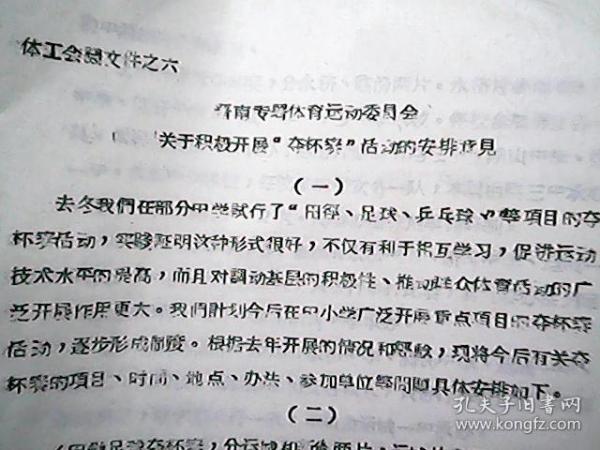 体工会議文件之六
晋南专署体育运动委员会
关于积极开展“夺杯赛”活动的安排意見
（一）
去冬我們在部分中学試行了“田徑、足球、乒乓球”等項目的夺
杯赛活动，实驗証明这种形式很好，不仅有利于相互学习，促进运动
技术水平的提高，而且对調动基层的积极性、推动群众体育活动的广
泛开展作用更大。我們計划今后在中小学广泛开展重点項目的夺杯赛
活动，逐步形成制度。根据去年开展的情况和經驗，现将今后有关夺
杯赛的項目、时间、地点、办法、参加单位等問題具体安排如下。
（二）
足球夺杯赛，分运城和
孔夫子旧书网
www.kongfz.com